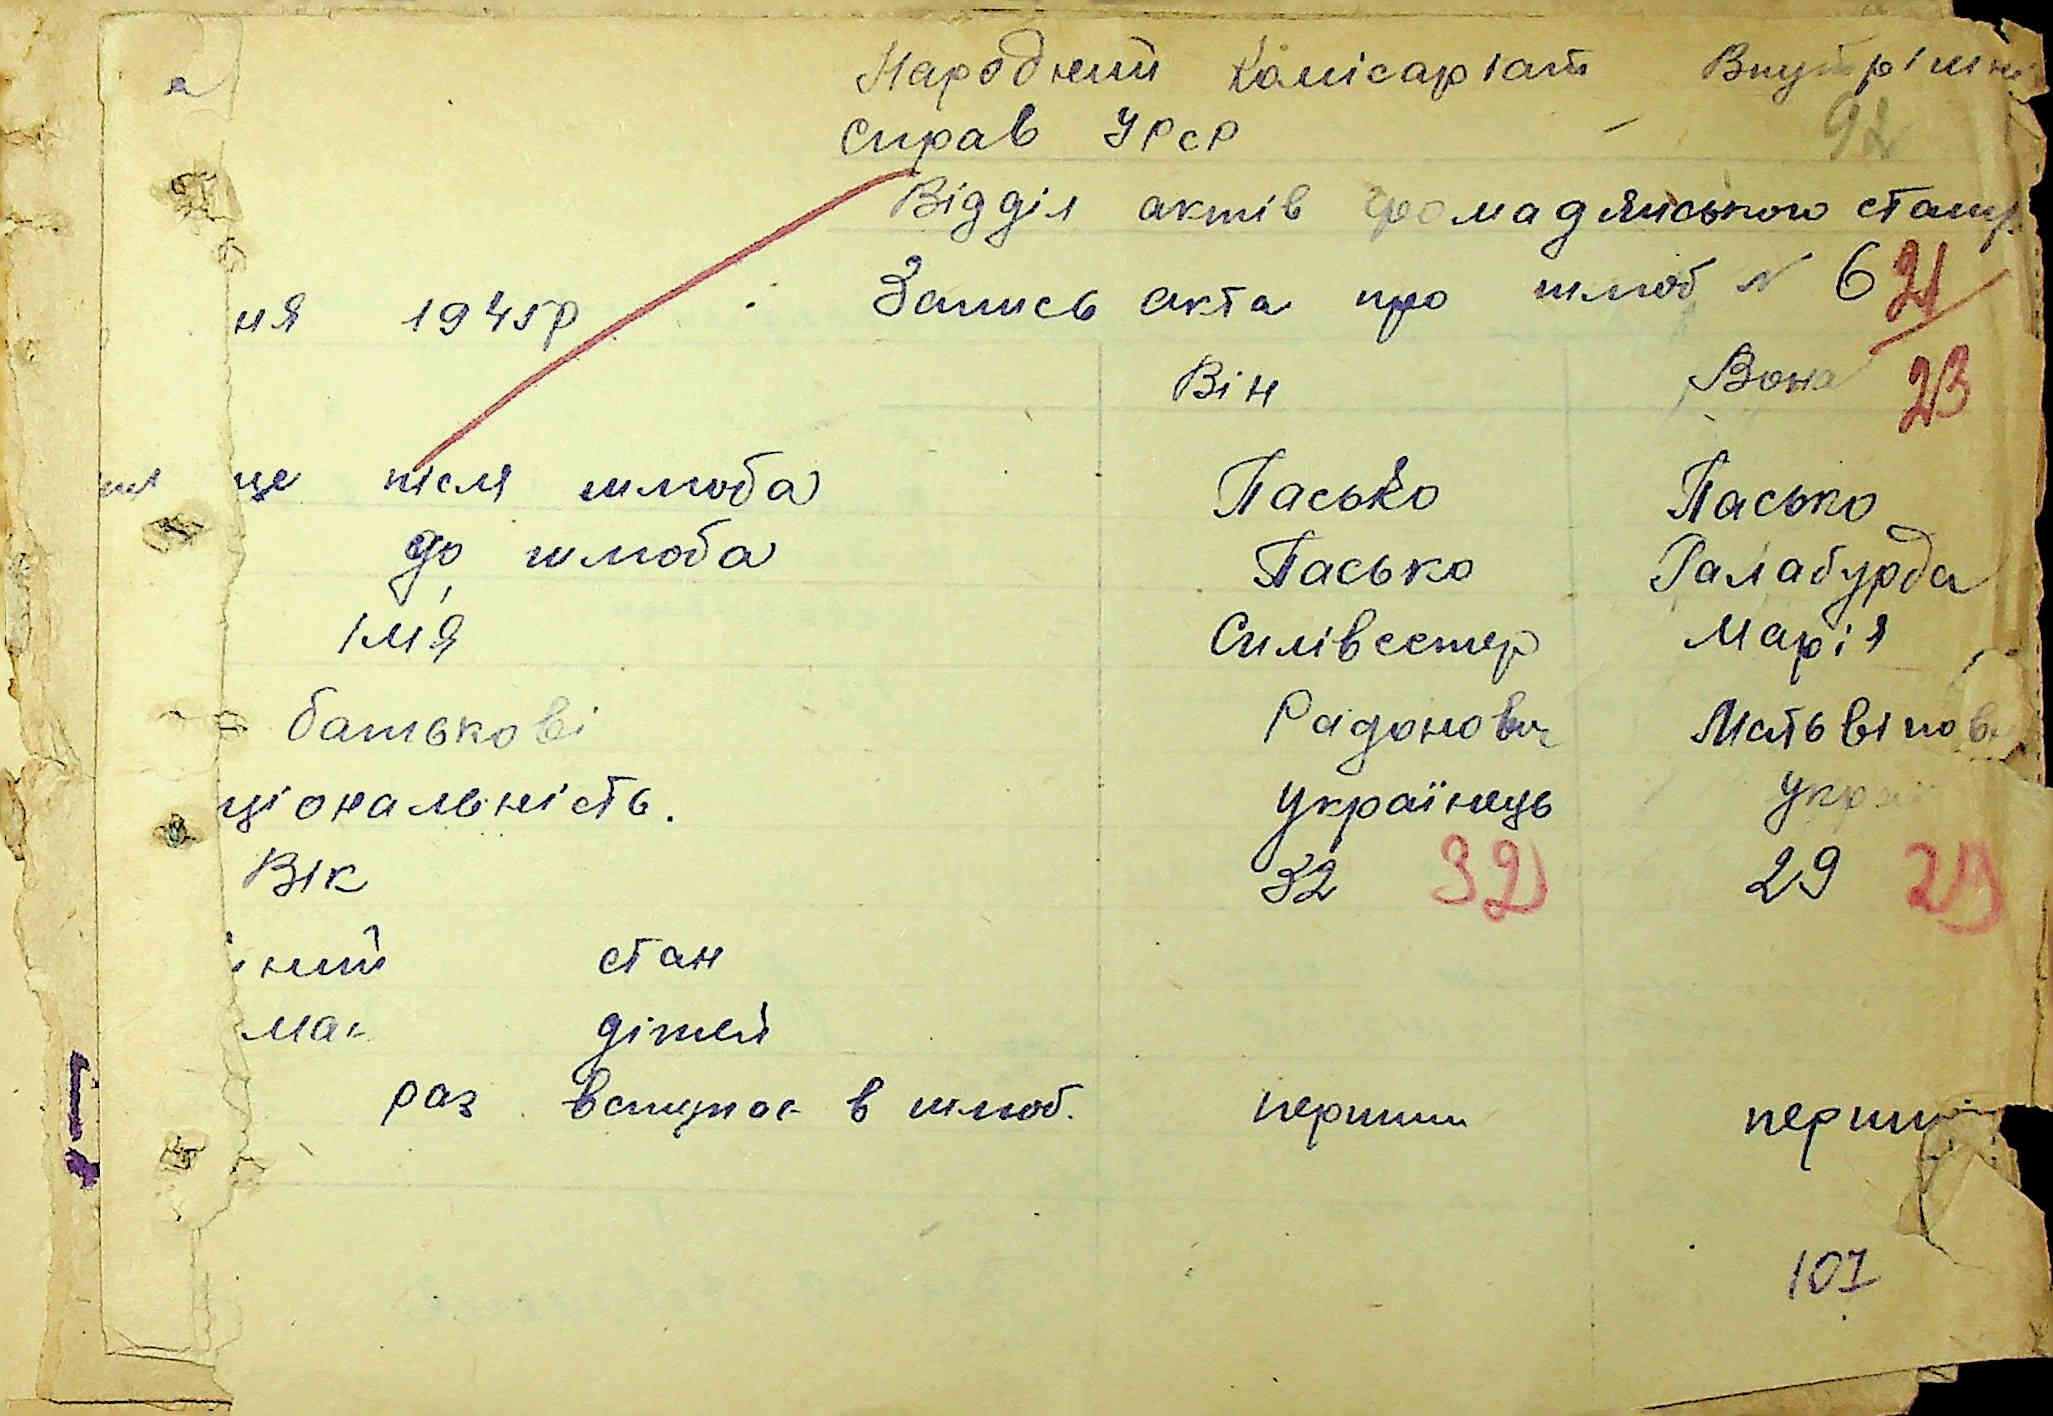 Народний Комісаріат Внутрішні
92
справ УРСР
Відділ актів громадянського стану
ня 1945р Запись акта про шлюб N 6 21
Він Вона 23
ще після шлюба Пасько Пасько
до шлюба Пасько Галабурда
Ім'я Силівестер Марія
батькові Радонович Матьвіпов
ціональність. Українець Украї
Вік 32 32 29 29
ний стан
має дітей
раз вступає в шлюб. перший перши
107